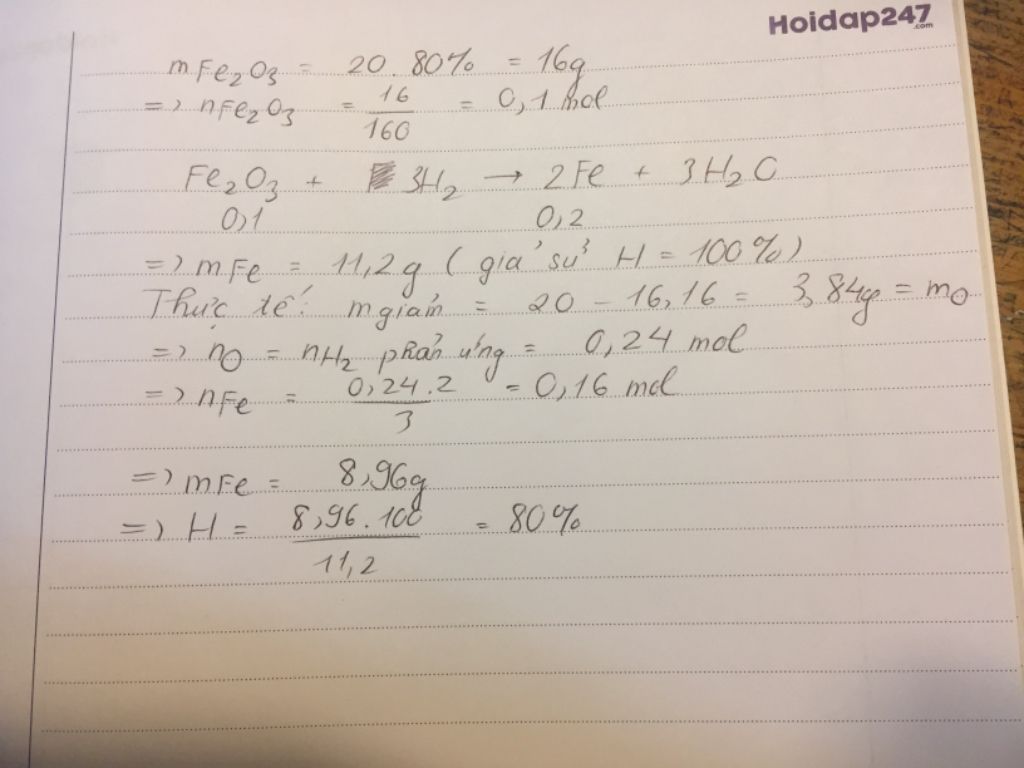 Hoidap247
.com
mFe2O3 = 20.80% = 16g
=> nFe2O3 = 16/160 = 0,1 mol
Fe2O3 + 3H2 → 2Fe + 3H2O
0,1 0,2
=> mFe = 11,2g (giả sử H = 100%)
Thực tế: m giảm = 20 - 16,16 = 3,84g = mO
=> nO = nH2 phản ứng = 0,24 mol
=> nFe = 0,24.2/3 = 0,16 mol
=> mFe = 8,96g
=> H = 8,96.100/11,2 = 80%